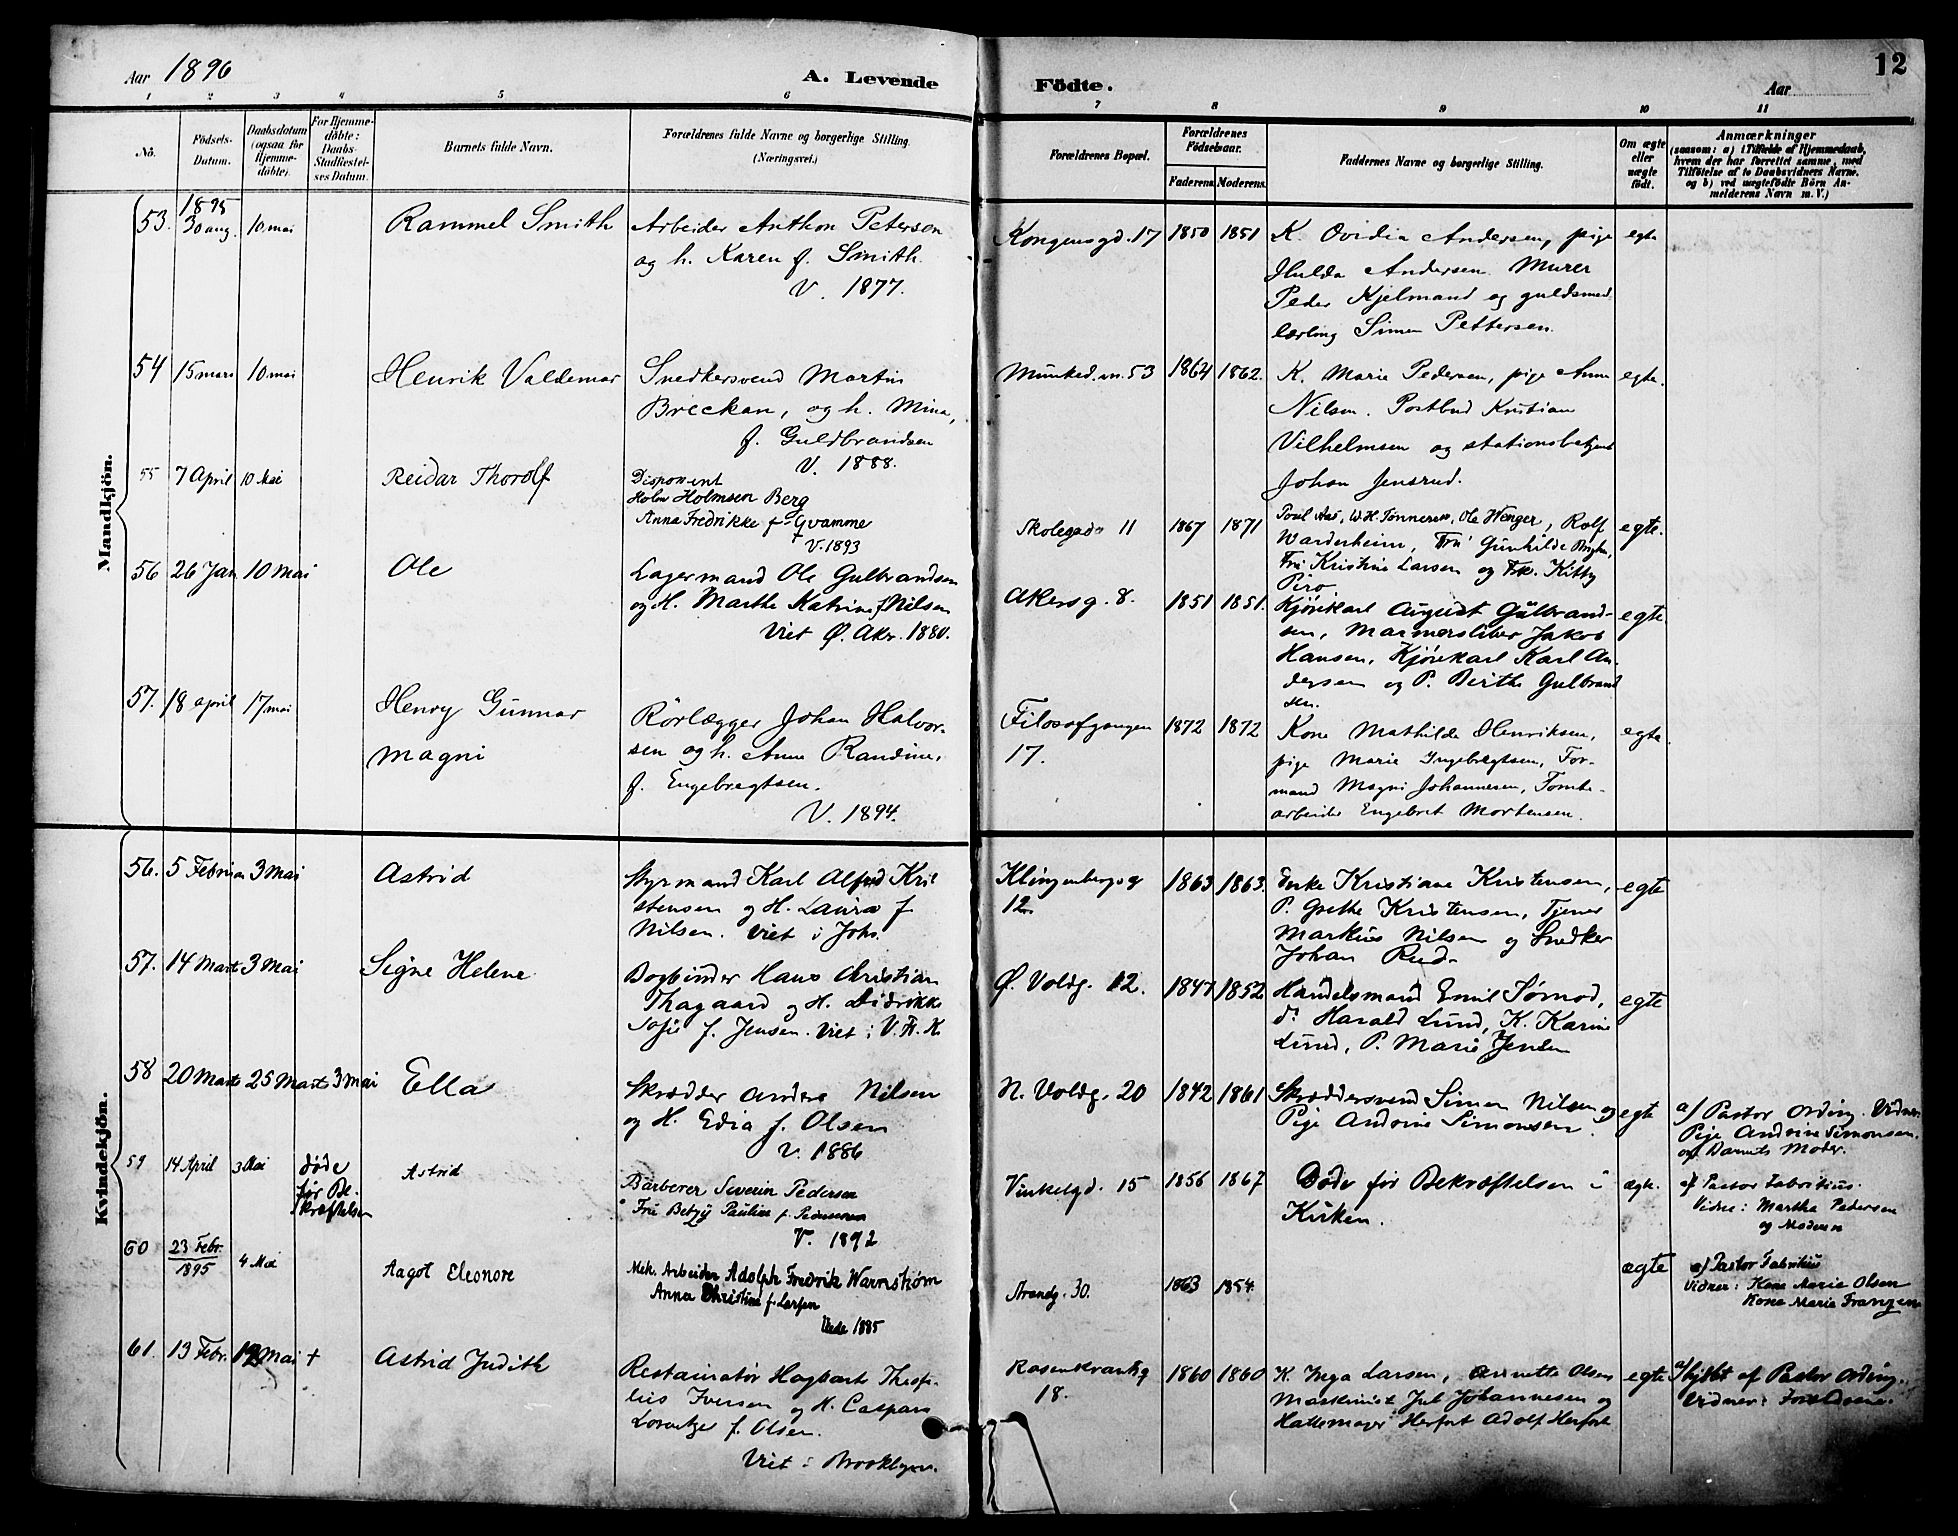 Aar 1896
A. Levende
Födte.
12
Aar
1 2 3 4 5 6 7 8 9 10 11
Nö.
Födsels-
Datum.
Daabsdatum
(ogsaa for
Hjemme-
döbte).
For Hjemme-
döbte:
Daabs-
Stadfæstel-
ses Datum.
Barnets fulde Navn.
Forældrenes fulde Navne og borgerlige Stilling.
(Næringsvei.)
Forældrenes Bopæl.
Forældrenes
Födselsaar.
Faderens. Moderens.
Faddernes Navne og borgerlige Stilling.
Om ægte
eller
uægte
födt.
Anmærkninger
(saasom: a) i Tilfælde af Hjemmedaab,
hvem der har forrettet samme, med
Tilföielse af to Daabsvidners Navne,
og b) ved uægtefödte Börn An-
melderens Navn m. V.)
Mandkjön.
53. 1895
30 aug. 10 mai
Rammel Smith
Arbeider Anthon Peterson
og h. Karen f. Smith.
V. 1877.
Kongensgd. 17 1850 1851
K. Ovidia Andersen, pige
Hulda Andersen. Murer
Peder Kjelmand og guldsmed
lærling Simen Pettersen.
egte
54 15 mars 10 mai
Henrik Valdemar
Snedkersvend Martin
Breckan, og h. Mina,
f. Guldbrandsen
V. 1888.
Munked.vn. 53 1864 1862.
K. Marie Pedersen, pige Anna
Nilsen. Postbud Kristian
Vilhelmsen og stationsbetjent
Johan Jensrud.
egte.
55 7 April 10 Mai
Reidar Thorolf
Disponent
Holm Holmsen Berg
Anna Fredrikke f. Qvamme
V. 1893
Skolegade 11 1867 1871
Poul Aas, W.H. Tönnesen, Ole Wenger, Rolf
Warderheim, Fru Gunhilde
Fru Kristine Larsen og Frk. Kitty
Piro.
egte.
56 26 Jan 10 Mai
Ole
Lagermand Ole Gulbrandsen
og H. Marthe Katrine f. Nilsen
Viet Ø. Aker. 1880.
Akersg. 8. 1851 1851.
Kjörekarl August Gulbrand-
sen, Marmorsliber Jakob
Hansen, Kjörekarl Karl An-
dersen og P. Berthe Gulbrand
sen.
egte
57. 18 april 17 mai
Henry Gunnar
Magni
Rörlægger Johan Halvor-
sen og h. Anna Randine,
f. Engebregtsen.
V. 1894.
Filosofgangen
17.
1872 1872
Kone Mathilde Henriksen,
pige Marie Ingebregtsen, For-
mand Magni Johannesen, Tomte-
arbeider Engebret Mortensen.
egte
Kvindekjön.
56. 5 Februar 3 Mai
Astrid
Styrmand Karl Alfred Kri
stensen og H. Laura f
Nilsen. Viet i Johs.
Klingenbergg
12.
1863 1863.
Enke Kristiane Kristensen,
P. Grethe Kristensen, Tjener
Markus Nilsen og Snedker
Johan Rud.
egte
57. 14 Marts 3 Mai
Signe Helene
Bogbinder Hans Christian
Thagaard og H. Didrikke
Sofie f. Jensen. Viet i V. Fr. K
Ø. Voldg. 12. 1847 1852
Handelsmand Emil Sörnod,
do Harald Lund, K. Karine
Lund, P. Marie Jensen
egte
58 20 Marts 25 Marts 3 Mai
Ella
Skrædder Anders Nilsen
og H. Edia f. Olsen
V. 1886
N. Voldg. 20 1842 1861
Skræddersvend Simen Nilsen og
Pige Andrine Simonsen.
egte
a/ Pastor Ording. Vidner
Pige Andrine Simonsen.
og Barnets Moder.
59 14 April 3 Mai
döde
för Be-
kræftelsen
Astrid
Barberer Severin Pedersen
Fru Betzy Pauline f. Pedersen
V. 1892
Vinkelgd. 15 1856 1867
Döde for Bekræftelsen i
Kirken.
ægte.
a/ Pastor Fabritius.
Vidner: Martha Pedersen
og Moderen
60 23 Febr.
1895
4 Mai
Aagot Eleonore
Mek. Arbeider Adolph Fredrik Warnström
Anna Christine f. Larsen
Viede 1885
Arendg. 30. 1863 1854.
ægte
a) Pastor Fabritius
Vidner: Kone Marie Olsen
Kone Marie Franzen
61. 13 Febr. 12 Mai +
Astrid Judith
Restauratör Hagbart Theofi-
lus Iversen og H. Caspara
Lorentze f. Olsen.
Viet i Brooklyn.
Rosenkrantzg
18.
1860 1860
K. Inga Larsen, Annette Olsen
Maskinist Jul Johannesen og
Hattemager Herfort Adolf Herfort
egte
a/ hjdbt af Pastor Ording.
Vidner: Forældrene.